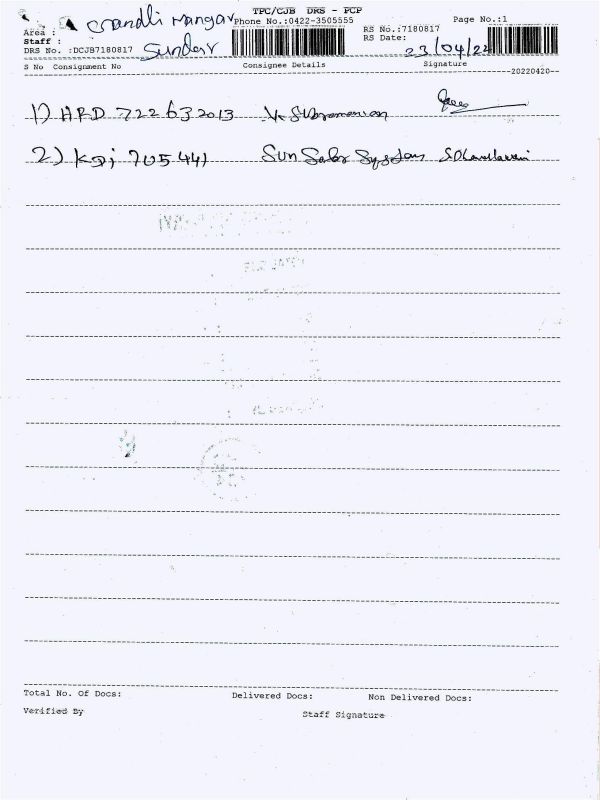 TPC/CJB DRS - PCP
Area : Nagar Phone No.:0422-3505555 Page No.:1
Staff : Sundar RS No.:7180817
DRS No. :DCJB7180817 RS Date: 23/04/22
S No Consignment No Consignee Details Signature
20220420
1) HRD 722632013 V. Subramanian
2) 705441 Sun Solar System
Total No. Of Docs: Delivered Docs: Non Delivered Docs:
Verified By Staff Signature